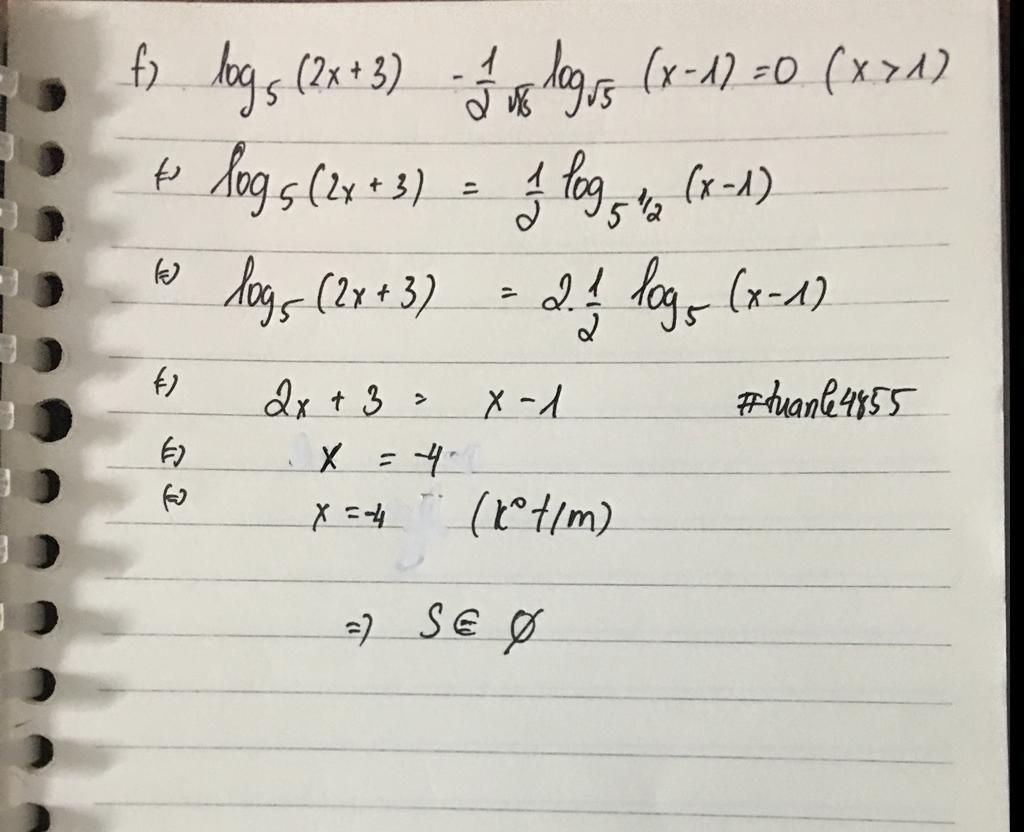 f) log₅ (2x+3) - 1/2 log√5 (x-1) = 0 (x>1)
(=) log₅ (2x+3) = 1/2 log 5^1/2 (x-1)
(=) log₅ (2x+3) = 2.1/2 log₅ (x-1)
(=) 2x + 3 = x - 1 #tuanle4855
(=) x = -4
(=) x = -4 (k° t/m)
=) S ∈ ∅